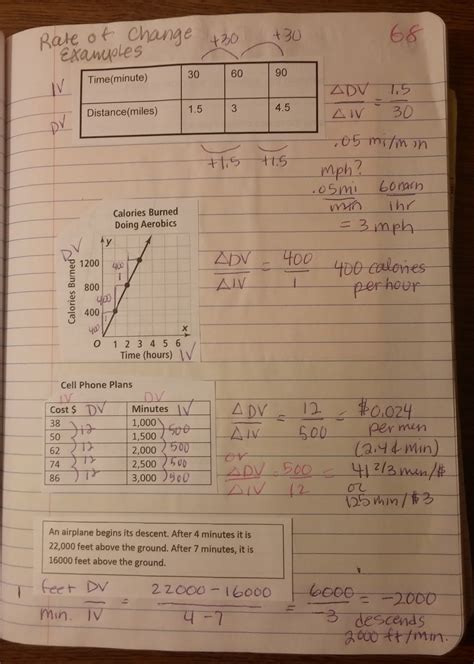 Rate of Change
Examples
+30 +30
68
IV Time(minute) 30 60 90
DV Distance(miles) 1.5 3 4.5
+1.5 +1.5
ΔDV/ΔIV = 1.5/30
.05 mi/min
mph?
.05mi/min 60min/1hr
= 3 mph
Calories Burned
Doing Aerobics
DV
Calories Burned
y
1200
800
400
400
1
400
400
O 1 2 3 4 5 6
x
Time (hours) IV
ΔDV/ΔIV = 400/1 400 calories
per hour
Cell Phone Plans
IV DV
Cost $ DV Minutes IV
38 1,000
50 1,500
62 2,000
74 2,500
86 3,000
12 500
12 500
12 500
12 500
ΔDV/ΔIV = 12/500 = $0.024
per min
(2.4¢ min)
or
ΔDV/ΔIV = 500/12 = 41 2/3 min/$
or
125 min/$3
An airplane begins its descent. After 4 minutes it is
22,000 feet above the ground. After 7 minutes, it is
16000 feet above the ground.
feet/min. DV/IV = 22000-16000/4-7 = 6000/-3 = -2000
descends
2000 ft/min.